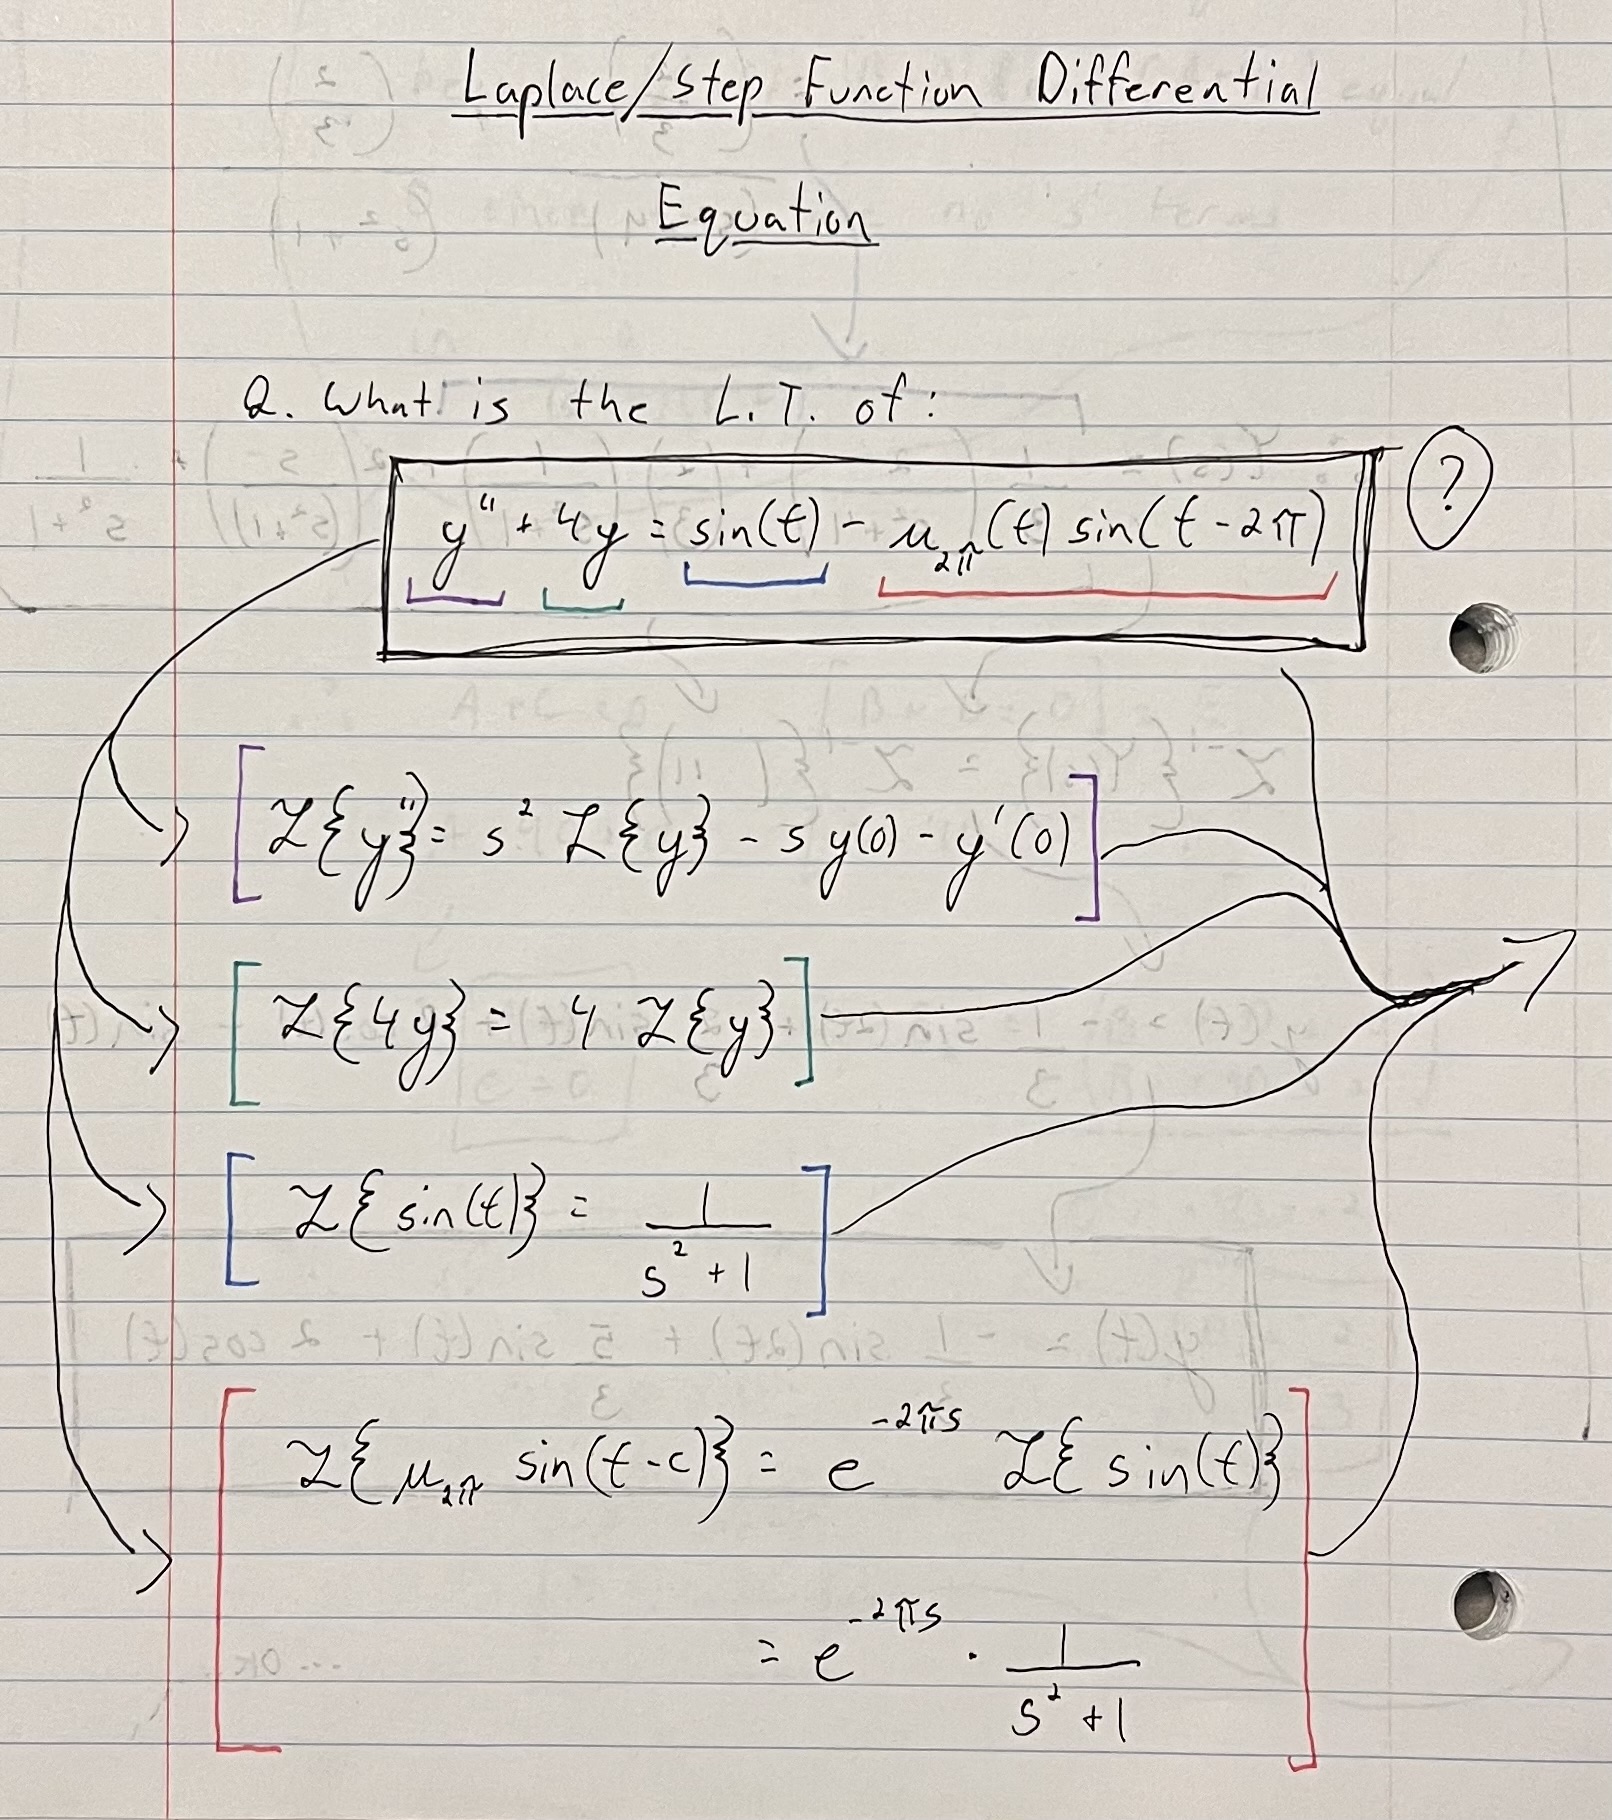 Laplace/Step Function Differential
Equation
Q. What is the L.T. of:
y'' + 4y = sin(t) - μ_2π(t) sin(t - 2π) ?
ℒ{y''} = s² ℒ{y} - s y(0) - y'(0)
ℒ{4y} = 4 ℒ{y}
ℒ{sin(t)} = 1/(s² + 1)
ℒ{μ_2π sin(t-c)} = e^(-2πs) ℒ{sin(t)}
= e^(-2πs) · 1/(s² + 1)